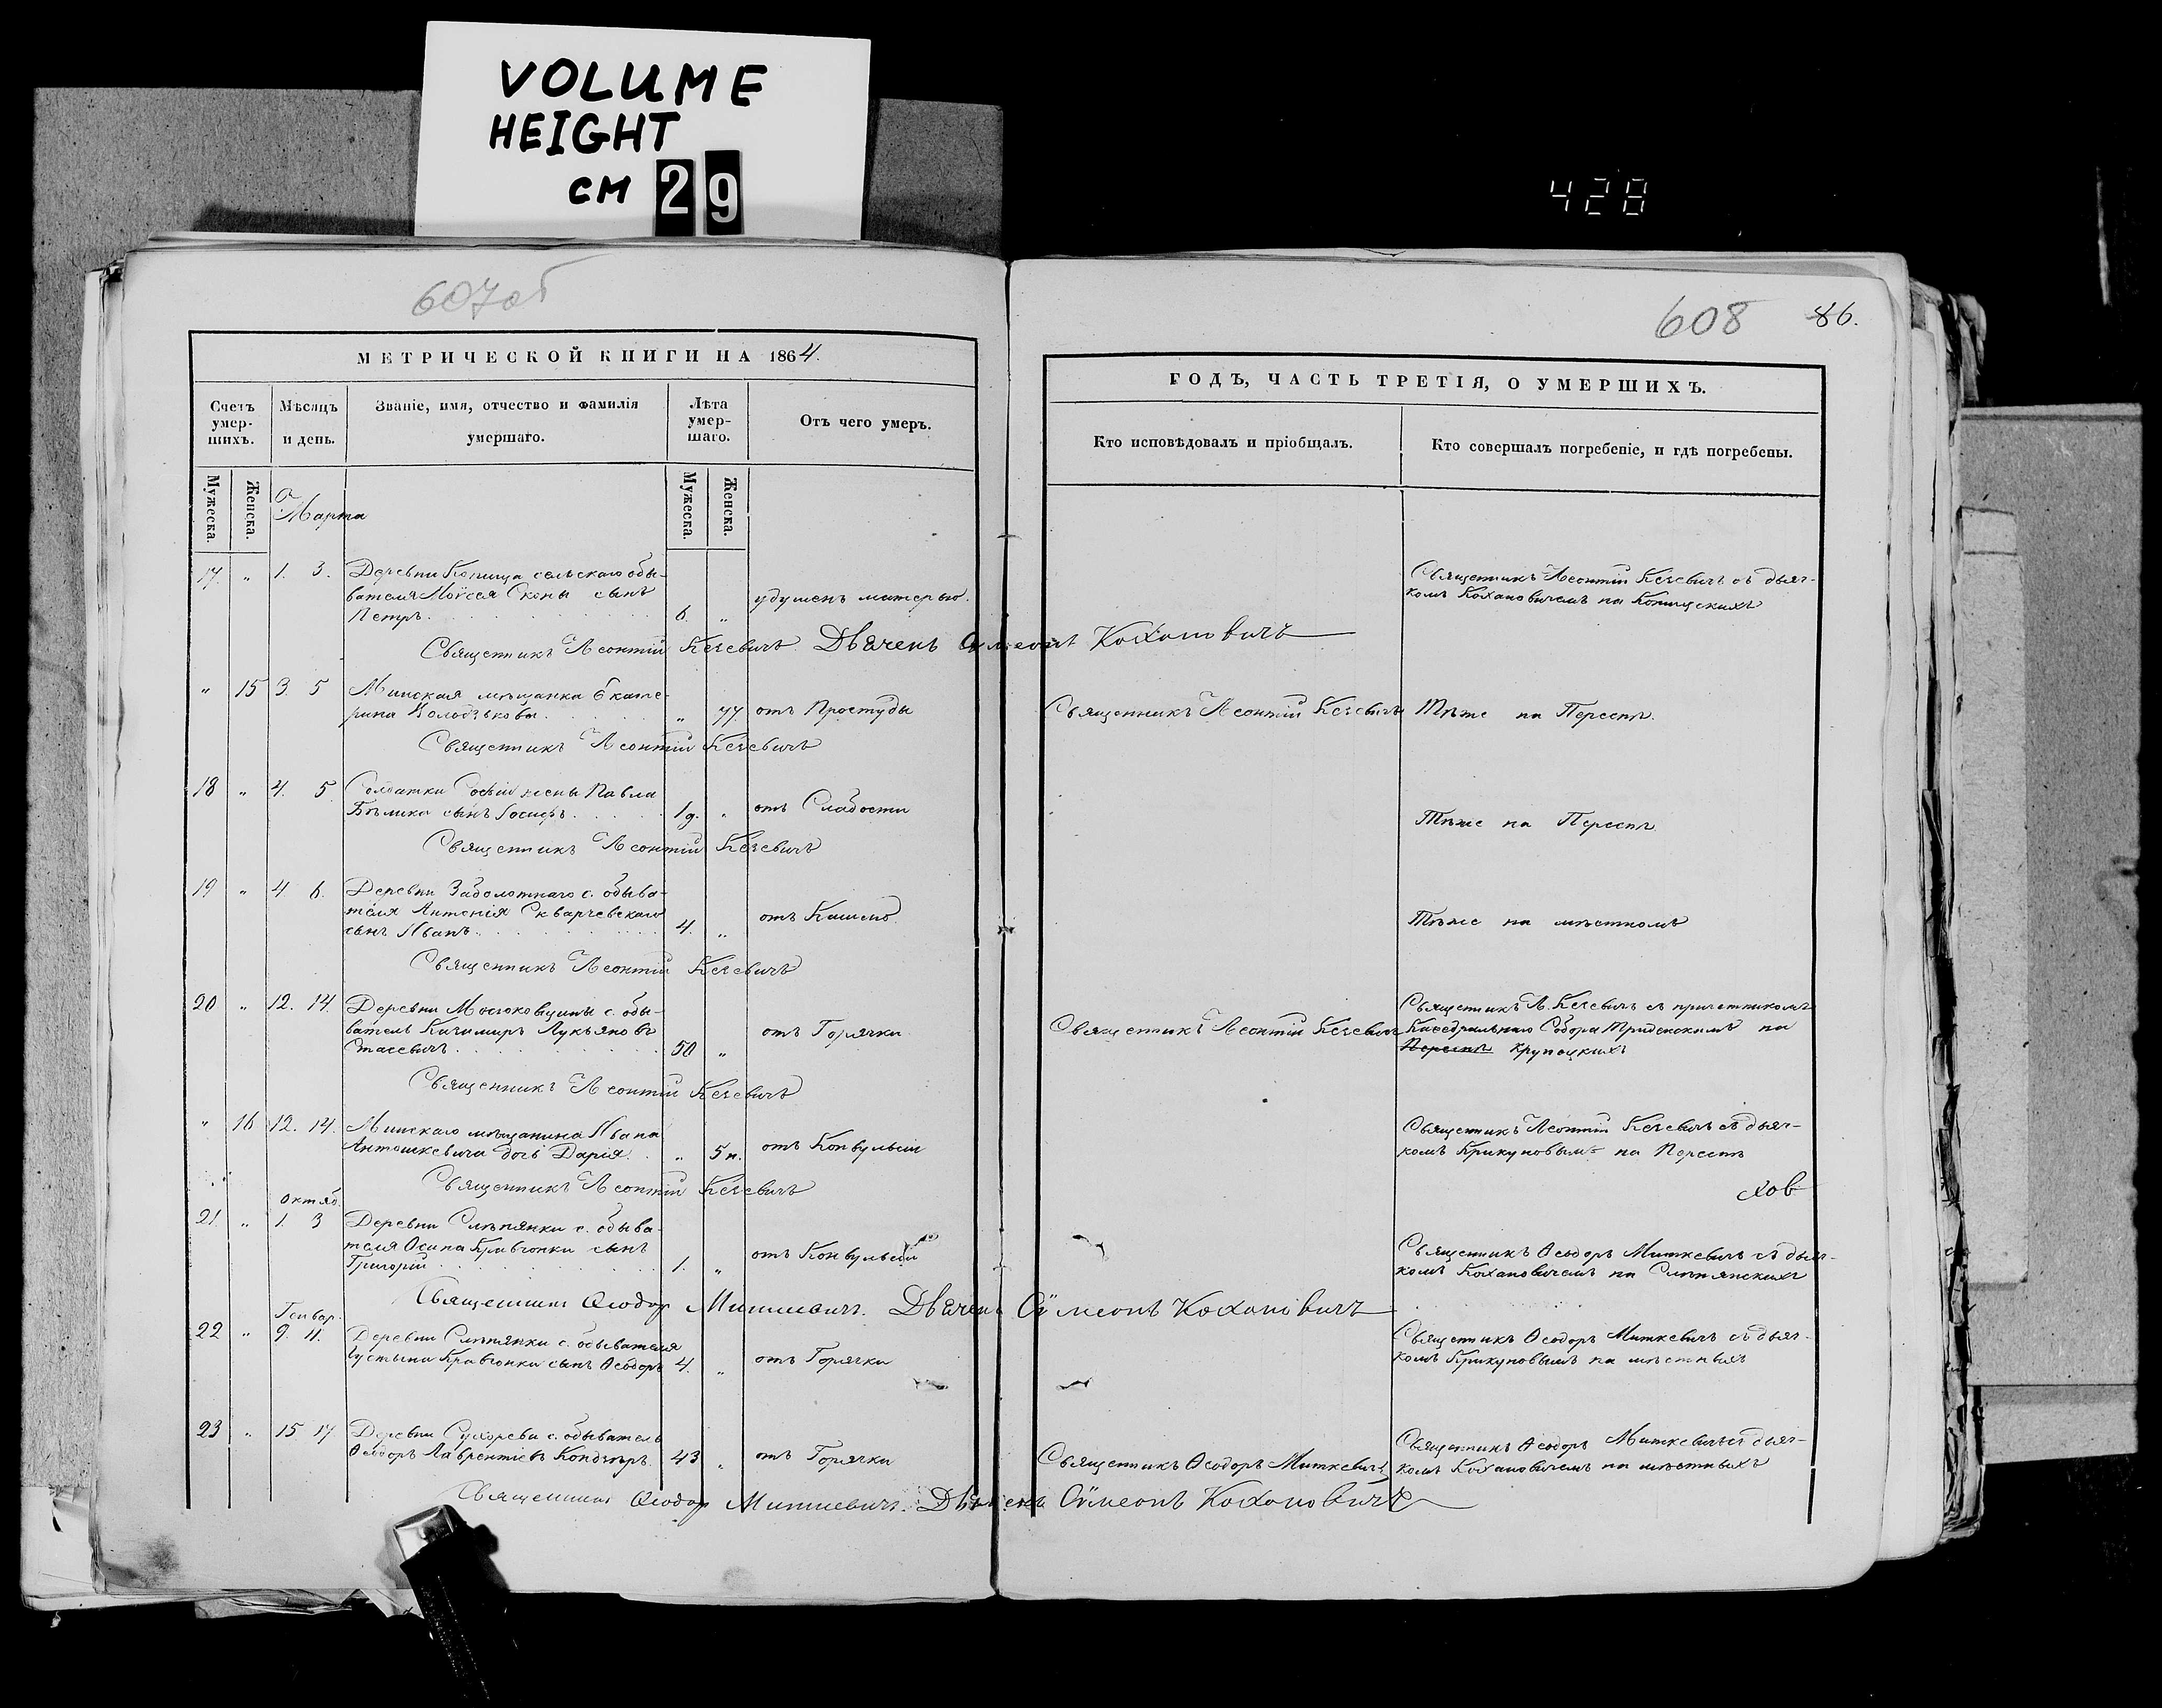 VOLUME
HEIGHT
CM 29
428
607об
608 86.
МЕТРИЧЕСКОЙ КНИГИ НА 1864.
ГОДЪ, ЧАСТЬ ТРЕТІЯ, О УМЕРШИХЪ.
Счетъ умер-шихъ.
Мѣсяцъ и день.
Званіе, имя, отчество и фамилія умершаго.
Лѣта умер-шаго.
Отъ чего умеръ.
Кто исповѣдовалъ и пріобщалъ.
Кто совершалъ погребеніе, и гдѣ погребены.
Мужеска. Женска. Мужеска. Женска.
Марта
17. " 1. 3. Деревни Копища сельскаго обы-
вателя Моѵсея Сконы сынъ
Петръ. 6. " удушенъ матерью.
Священникъ Леонтій Кесевичъ съ дьяч-
комъ Кохановичемъ на Копищскихъ
Священникъ Леонтій Кесевичъ Дьячекъ Сѵмеонъ Кохановичъ
" 15 3 5 Минская мѣщанка Екате-
рина Колодзькова. " 77 отъ Простуды
Священникъ Леонтій Кесевичъ Тѣже на Переспѣ.
Священникъ Леонтій Кесевичъ
18 " 4. 5. Солдатки Софіи жены Павла
Бѣлика сынъ Іосифъ. 1 д. " отъ Слабости
Тѣже на Переспѣ
Священникъ Леонтій Кесевичъ
19 " 4 6. Деревни Заболотнаго с. обыва-
теля Антонія Скварчевскаго
сынъ Иванъ. 4. " отъ Кашеля
Тѣже на мѣстномъ
Священникъ Леонтій Кесевичъ
20 " 12. 14. Деревни с. обы-
ватель Казимиръ Лукьяновъ
Стасевичъ. 50 " отъ Горячки
Священникъ Леонтій Кесевичъ
Священникъ Л. Кесевичъ съ причетникомъ
Каѳедральнаго Собора на
Переспѣ Крупецкихъ
Священникъ Леонтій Кесевичъ
" 16 12. 14. Минскаго мѣщанина Ивана
Антошкевича дочь Дарія. " 5 н. отъ Конвульсіи
Священникъ Леонтій Кесевичъ съ дьяч-
комъ Крикуновымъ на Переспѣ
Священникъ Леонтій Кесевичъ
Октяб.
21 " 1. 3 Деревни Слѣпянки с. обыва-
теля Осипа Кравчонки сынъ
Григорій 1. " отъ Конвульсіи
Священникъ Ѳеодоръ Миткевичъ съ дьяч-
комъ Кохановичемъ на Слѣпянскихъ
Священникъ Ѳеодор Миткевичъ. Дьячекъ Сѵмеонъ Кохановичъ
Генвар.
22 " 9. 11. Деревни Слѣпянки с. обывателя
Іустына Кравчонки сынъ Ѳеодоръ 4. " отъ Горячки
Священникъ Ѳеодоръ Миткевичъ съ дьяч-
комъ Крикуновымъ на мѣстныхъ
23 " 15 17 Деревни Сухорева с. обыватель
Ѳеодоръ Лаврентіевъ 43 " отъ Горячки
Священникъ Ѳеодоръ Миткевичъ
Священникъ Ѳеодоръ Миткевичъ съ дьяч-
комъ Кохановичемъ на мѣстныхъ
Священникъ Ѳеодор Миткевичъ. Дьячекъ Сѵмеонъ Кохановичъ